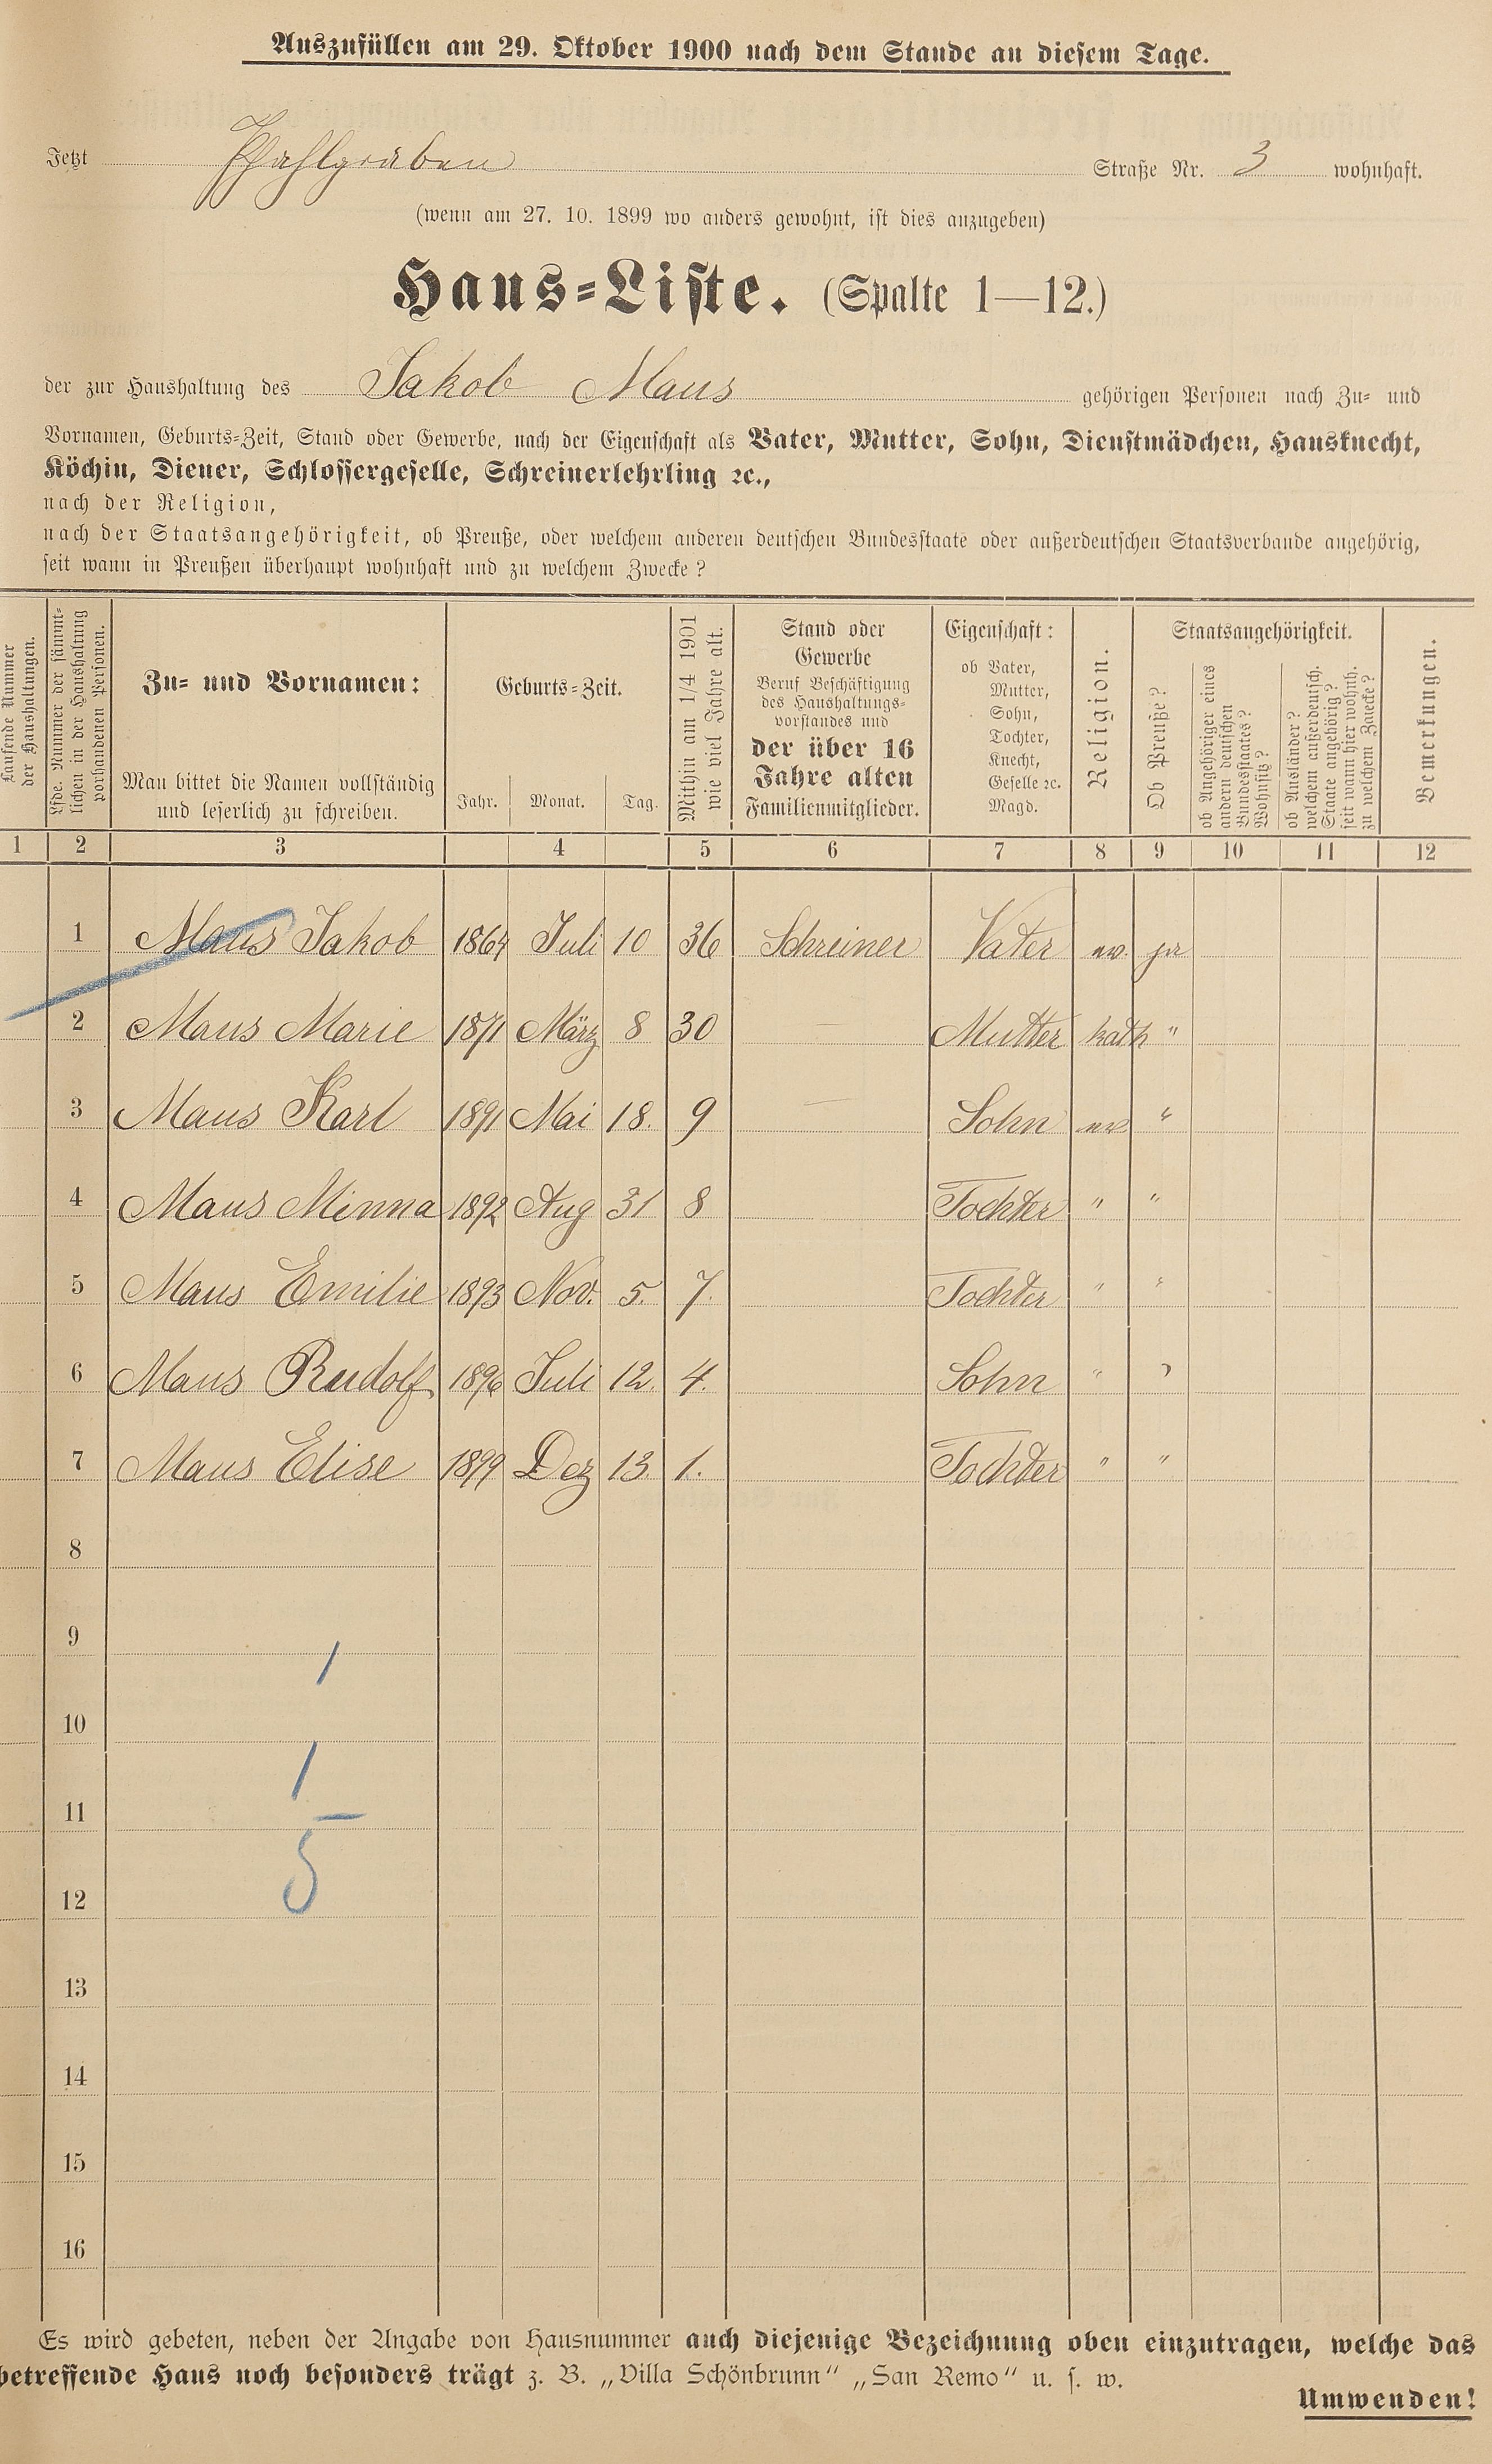 Auszufüllen am 29. Oktober 1900 nach dem Stande an diesem Tage.
Jetzt Pfahlgraben Straße Nr. 3 wohnhaft.
(wenn am 27. 10. 1899 wo anders gewohnt, ist dies anzugeben)
Haus-Liste. (Spalte 1—12.)
der zur Haushaltung des Jakob Maus gehörigen Personen nach Zu- und
Vornamen, Geburts-Zeit, Stand oder Gewerbe, nach der Eigenschaft als Vater, Mutter, Sohn, Dienstmädchen, Hausknecht,
Köchin, Diener, Schlossergeselle, Schreinerlehrling ꝛc.,
nach der Religion,
nach der Staatsangehörigkeit, ob Preuße, oder welchem anderen deutschen Bundesstaate oder außerdeutschen Staatsverbande angehörig,
seit wann in Preußen überhaupt wohnhaft und zu welchem Zwecke?
Laufende Nummer
der Haushaltungen.
Lfde. Nummer der sämmt-
lichen in der Haushaltung
vorhandenen Personen.
Zu- und Vornamen:
Man bittet die Namen vollständig
und leserlich zu schreiben.
Geburts-Zeit.
Jahr. Monat. Tag.
Mithin am 1/4 1901
wie viel Jahre alt.
Stand oder
Gewerbe
Beruf Beschäftigung
des Haushaltungs-
vorstandes und
der über 16
Jahre alten
Familienmitglieder.
Eigenschaft:
ob Vater,
Mutter,
Sohn,
Tochter,
Knecht,
Geselle ꝛc.
Magd.
Religion.
Staatsangehörigkeit.
Ob Preuße?
ob Angehöriger eines
andern deutschen
Bundesstaates?
Wohnsitz?
ob Ausländer?
welchem außerdeutsch.
Staate angehörig?
seit wann hier wohnh.
zu welchem Zwecke?
Bemerkungen.
1 2 3 4 5 6 7 8 9 10 11 12
1 Maus Jakob 1864 Juli 10 36 Schreiner Vater ev. ja
2 Maus Marie 1871 März 8 30 — Mutter kath "
3 Maus Karl 1891 Mai 18. 9 — Sohn ev "
4 Maus Minna 1892 Aug 31 8 Tochter " "
5 Maus Emilie 1893 Nov. 5. 7. Tochter " "
6 Maus Rudolf 1896 Juli 12. 4. Sohn " "
7 Maus Elise 1899 Dez 13. 1. Tochter " "
8
9
1
10
1
11
5
12
13
14
15
16
Es wird gebeten, neben der Angabe von Hausnummer auch diejenige Bezeichnung oben einzutragen, welche das
betreffende Haus noch besonders trägt z. B. „Villa Schönbrunn“ „San Remo“ u. s. w.
Umwenden!